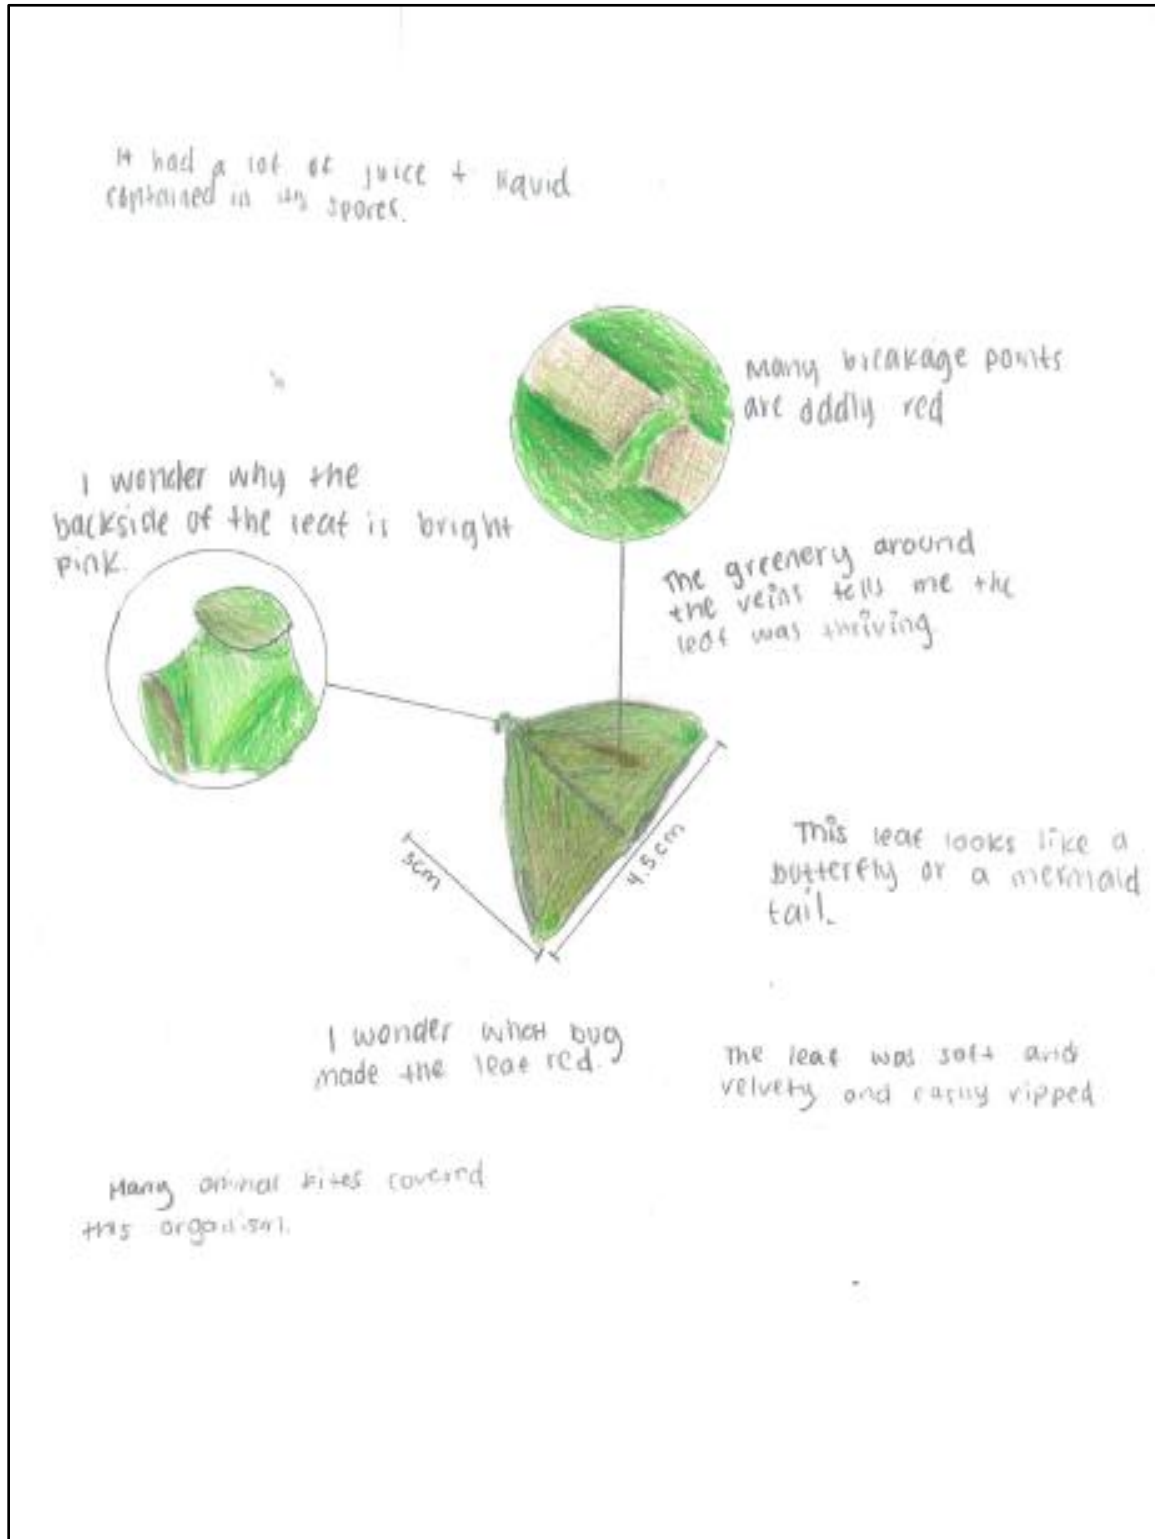 It had a lot of juice + liquid
contained in its spores.
Many breakage points
are oddly red
I wonder why the
backside of the leaf is bright
pink.
The greenery around
the veins tells me the
leaf was thriving
3cm
4.5cm
This leaf looks like a
butterfly or a mermaid
tail.
I wonder what bug
made the leaf red.
The leaf was soft and
velvety and easily ripped
Many animal bites covered
this organism.